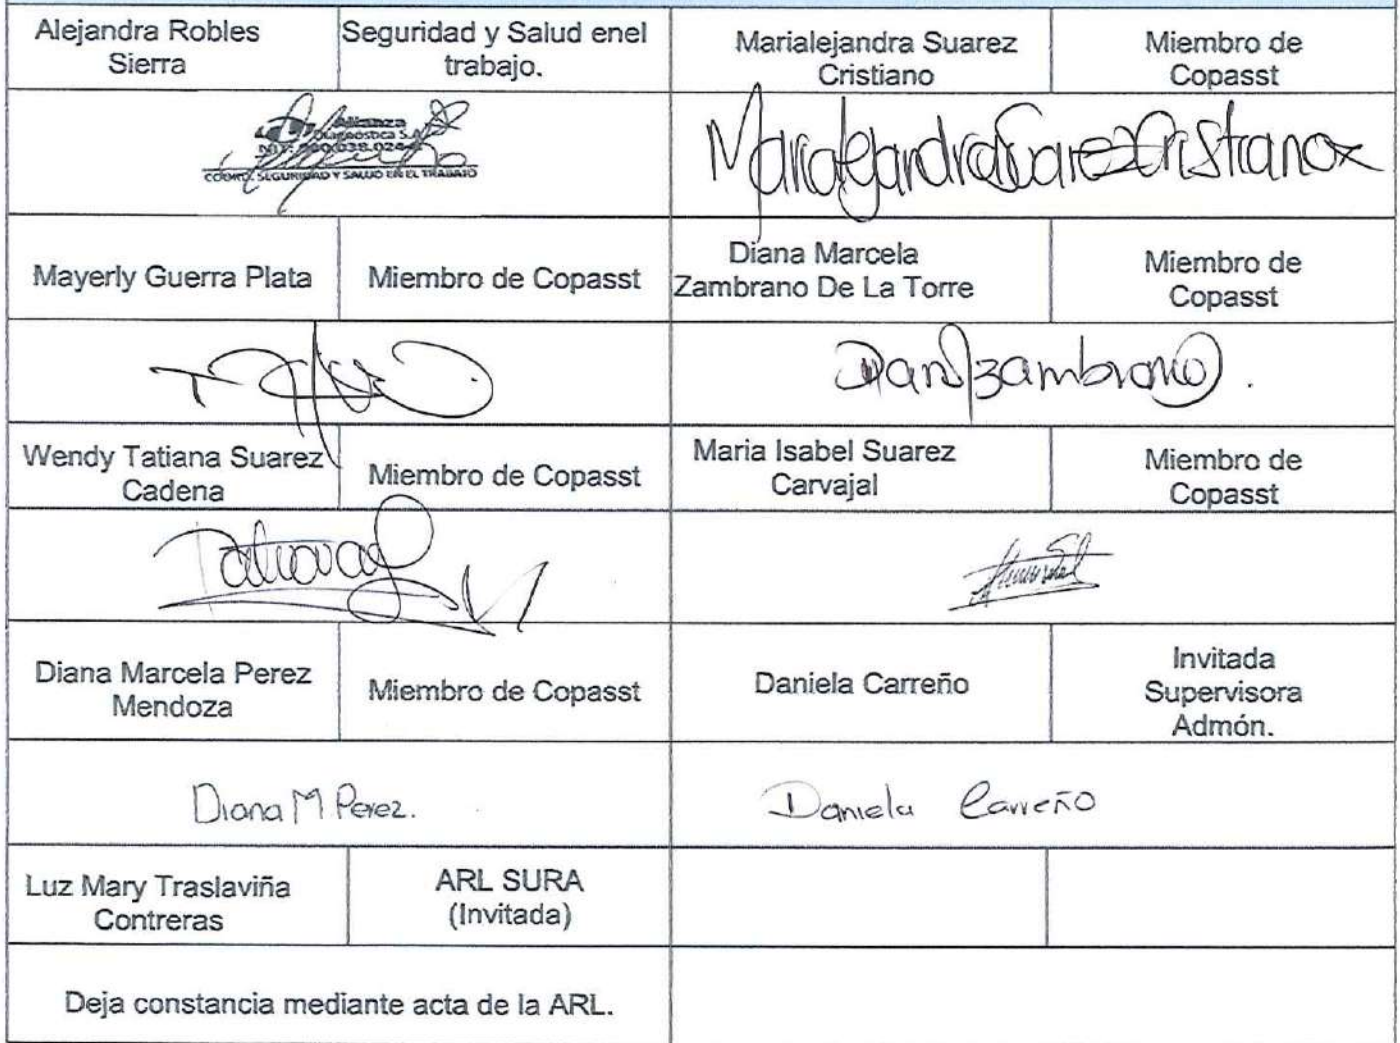 Alejandra Robles
Sierra
Seguridad y Salud enel
trabajo.
Marialejandra Suarez
Cristiano
Miembro de
Copasst
Alianza
Diagnóstica S.A.
COORD. SEGURIDAD Y SALUD EN EL TRABAJO
Marialejandra Suarez Cristiano
Mayerly Guerra Plata
Miembro de Copasst
Diana Marcela
Zambrano De La Torre
Miembro de
Copasst
Wendy Tatiana Suarez
Cadena
Miembro de Copasst
Maria Isabel Suarez
Carvajal
Miembro de
Copasst
Diana Marcela Perez
Mendoza
Miembro de Copasst
Daniela Carreño
Invitada
Supervisora
Admón.
Diana M Perez.
Daniela Carreño
Luz Mary Traslaviña
Contreras
ARL SURA
(Invitada)
Deja constancia mediante acta de la ARL.